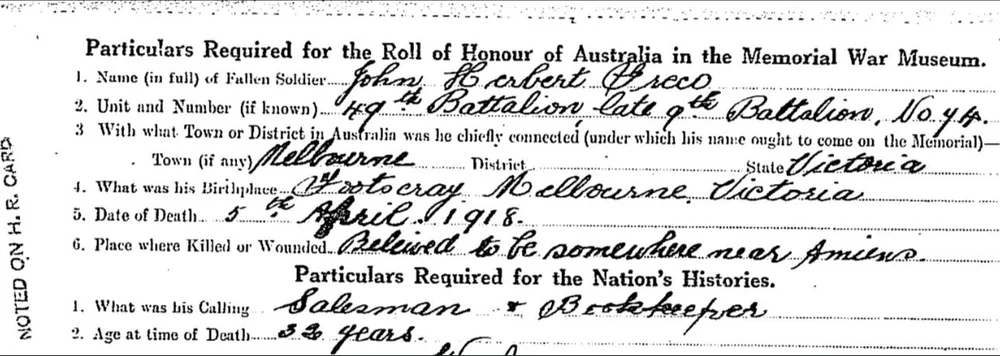 Particulars Required for the Roll of Honour of Australia in the Memorial War Museum.
1. Name (in full) of Fallen Soldier John Herbert Greco
2. Unit and Number (if known) 49th Battalion, late 9th Battalion, No 74.
3 With what Town or District in Australia was he chiefly connected (under which his name ought to come on the Memorial)—
Town (if any) Melbourne District State Victoria
4. What was his Birthplace Footscray Melbourne Victoria
5. Date of Death 5th April 1918.
6. Place where Killed or Wounded Beleived to be somewhere near Amiens.
Particulars Required for the Nation's Histories.
1. What was his Calling Salesman & Bookkeeper
2. Age at time of Death 32 years.
NOTED ON H. R. CARD